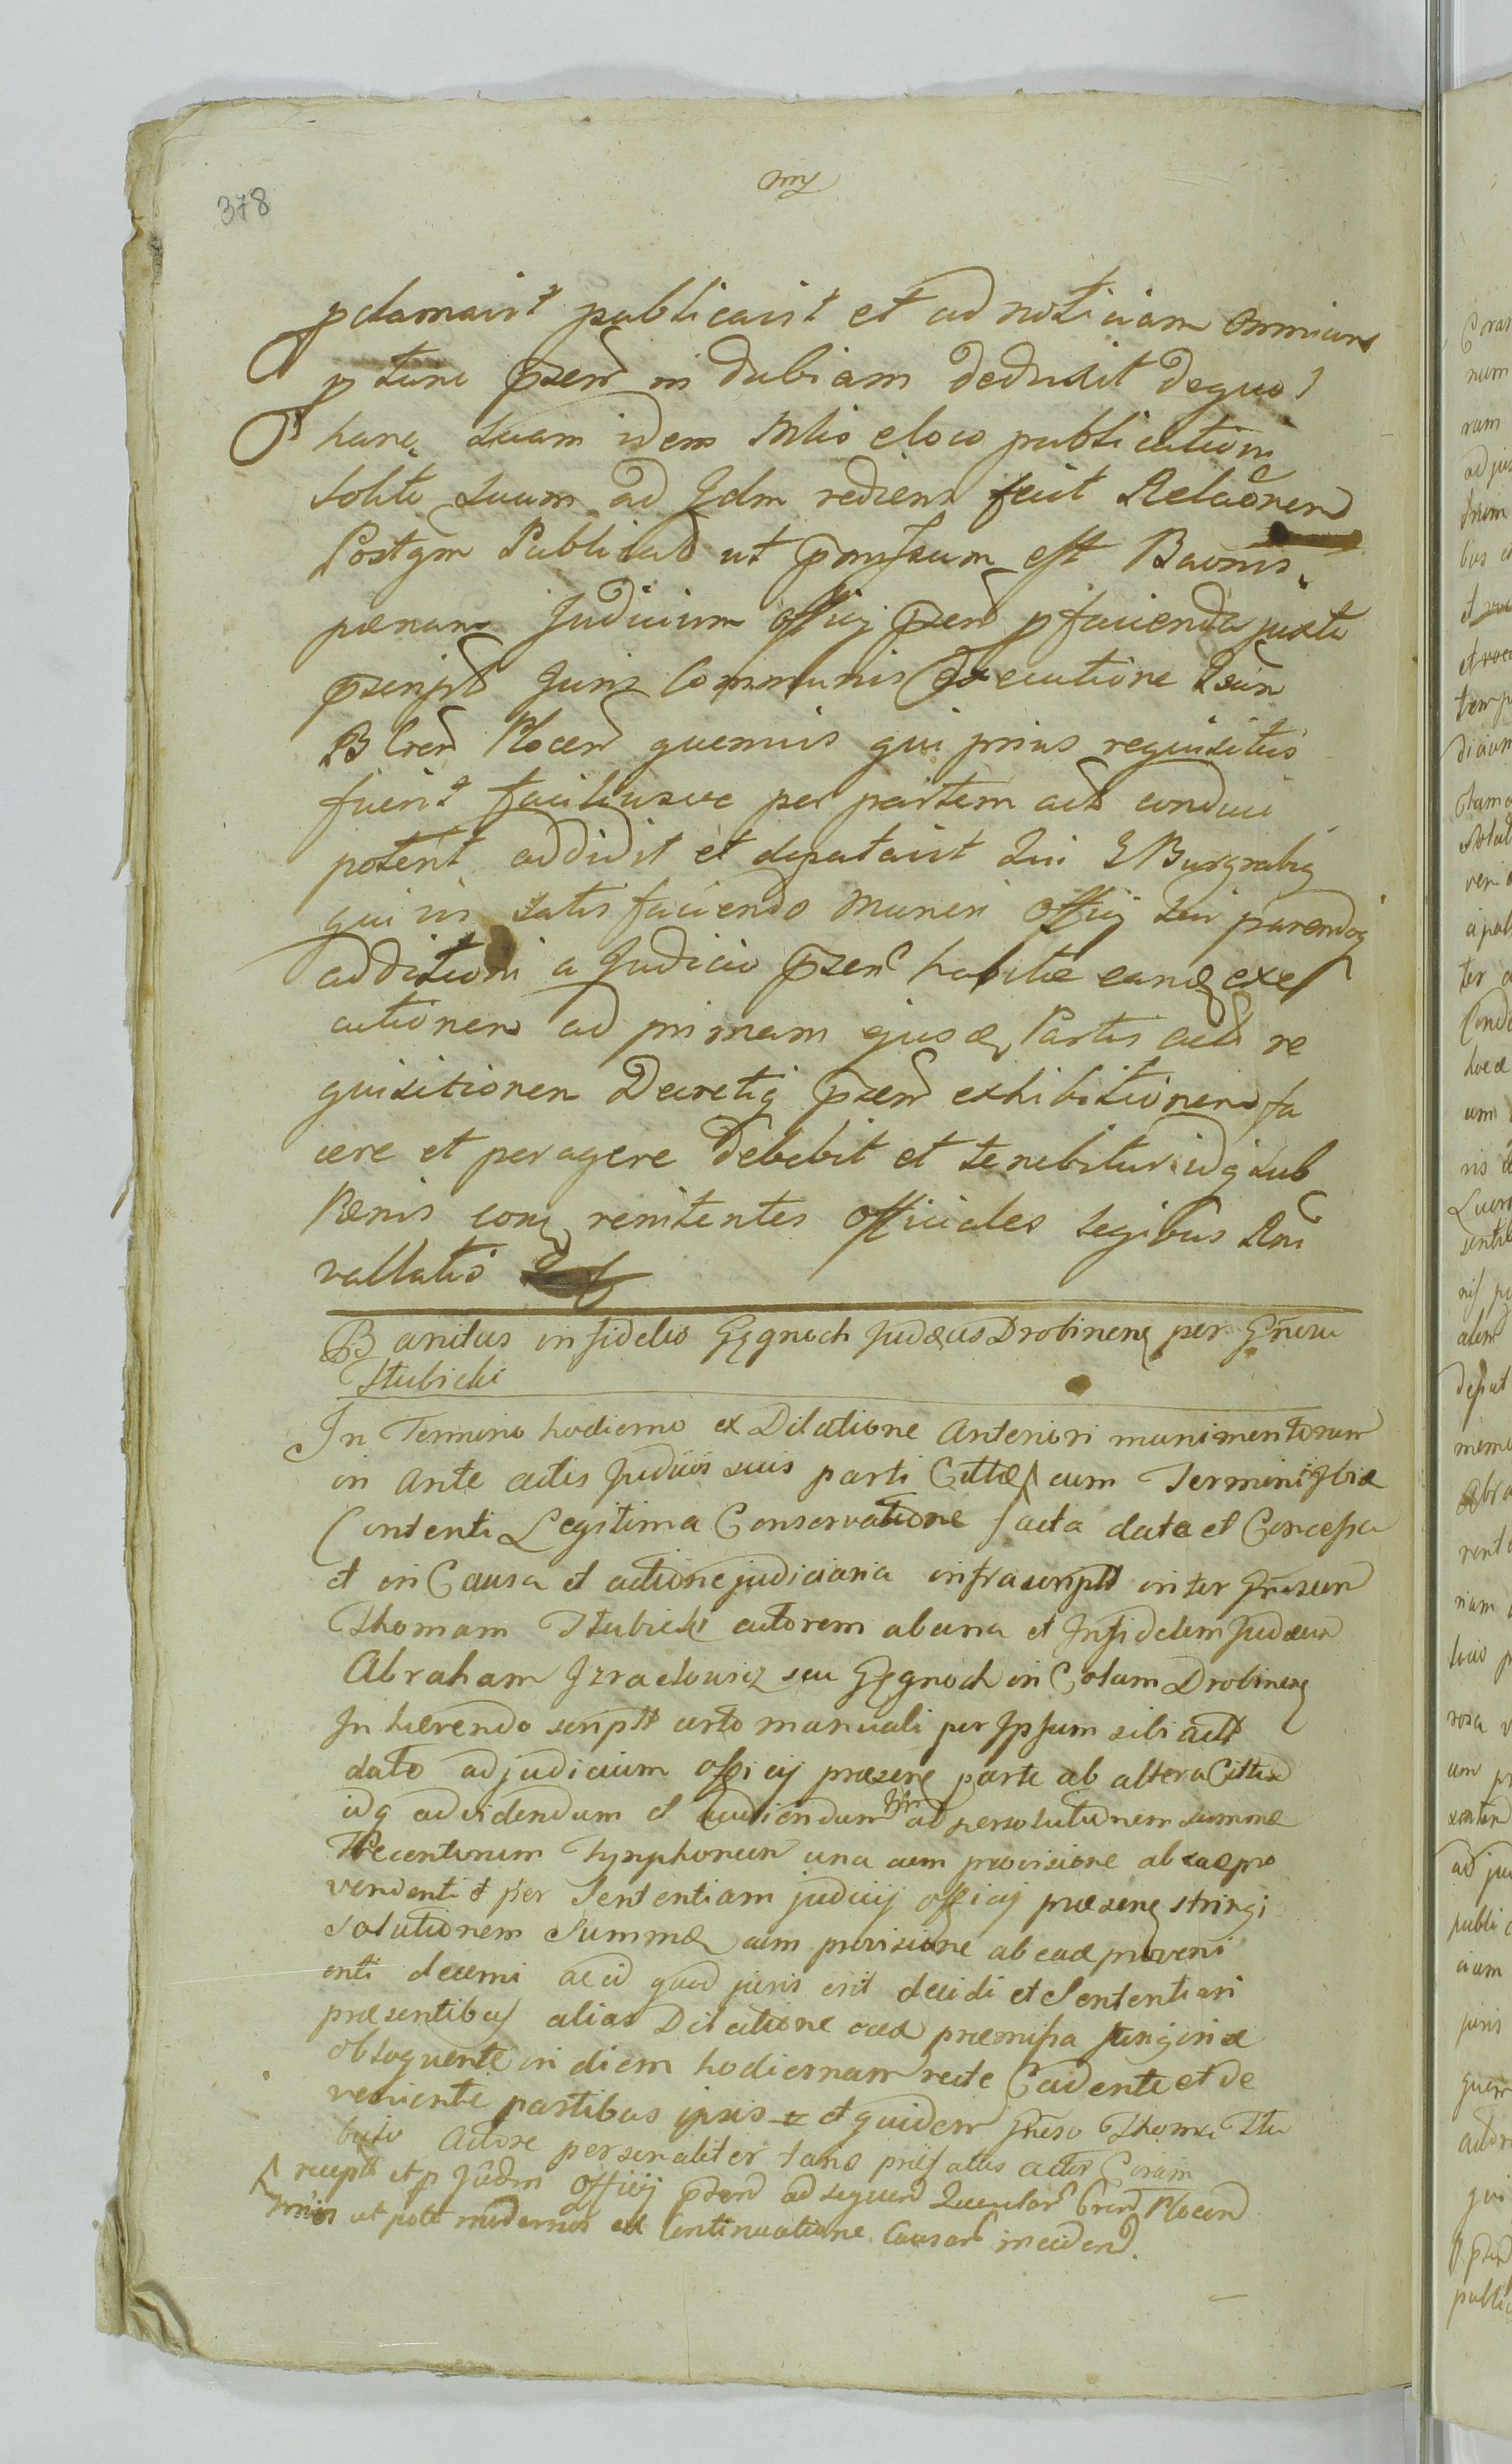 378
pclamavit publicavit et ad noticiam omnium
p tunc pzen in dubiam deduxit de quo
hanc suam idem Mlis eloco publicationi
solito suum ad Jdm rediens fecit Relaonem
Postqm Publicat ut pmissum est Baonis
paenam Judicium officij pzen p facienda juxta
pscript Juris Communis Executione
B Cren Plocen quemvis qui prius requisitus
fuerit faciliusve per partem act conduci
poterit addidit et deputavit Qui Burgrabij
qui in satis faciendo muneri officij sui parendoq
additioni a Judicio pzen habitae eandem exe
cutionem ad primam ejusdem Partis act re
quisitionem Decretiq pzen exhibitionem fa
cere et peragere debebit et tenebitur idq sub
Paenis contra renitentes officiales legibus Rni
vallatis
Banitus infidelis Gęgnoch Judaeus Drobinens per Gnosu
Stubicki
In Termino hodierno ex Dilatione Anteriori munimentorum
in ante actis Judicijs suis parti Cittae cum Termini
Contenti Legitima Conservatione facta data et Concessa
et in Causa et actione judiciaria infrascript inter Gnosum
Thomam Stubicki actorem ab una et Infidelem Judaeum
Abraham Jzraelowicz seu Gęgnoch in Colam Drobinens
Inhaerendo script certo manuali per Ipsum sibi act
dato ad judicium officij praesens parte ab altera Cittum
idq ad videndum et audiendum ad persolutionem summae
Trecentorum Tynphorum una cum provisione ab eaepro
venienti per Sententiam judicij officij praesens stringi
solutionem Summae cum provisione ab eadem proveni
enti decerni ac id quod juris erit decidi et Sententiari
praesentibus alias Dilatione praemissa
obloquente in diem hodiernam recte Cadente et de
veniente partibus ipsis et quidem Gnoso Thoma Stu
bicki Actore personaliter praefatus actor Coram
recept et p Judm Officij pzen ad sequen Querelar Cren Plocen
Tmios ut pote modernos ex Continuatione Causar inciden.